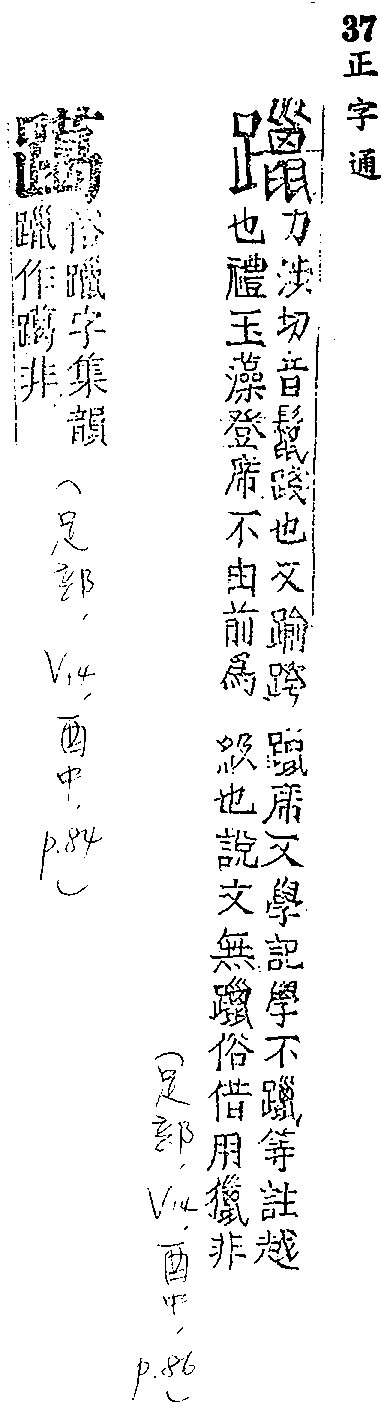 37 正字通
躐
力涉切音鬣踐也又踰跨
也禮玉藻登席不由前爲
躐席又學記學不躐等註越
級也說文無躐俗借用獵非
(足部, V14, 酉中, p.86)
俗躐字集韻
躐作非
(足部, V14, 酉中, p.84)